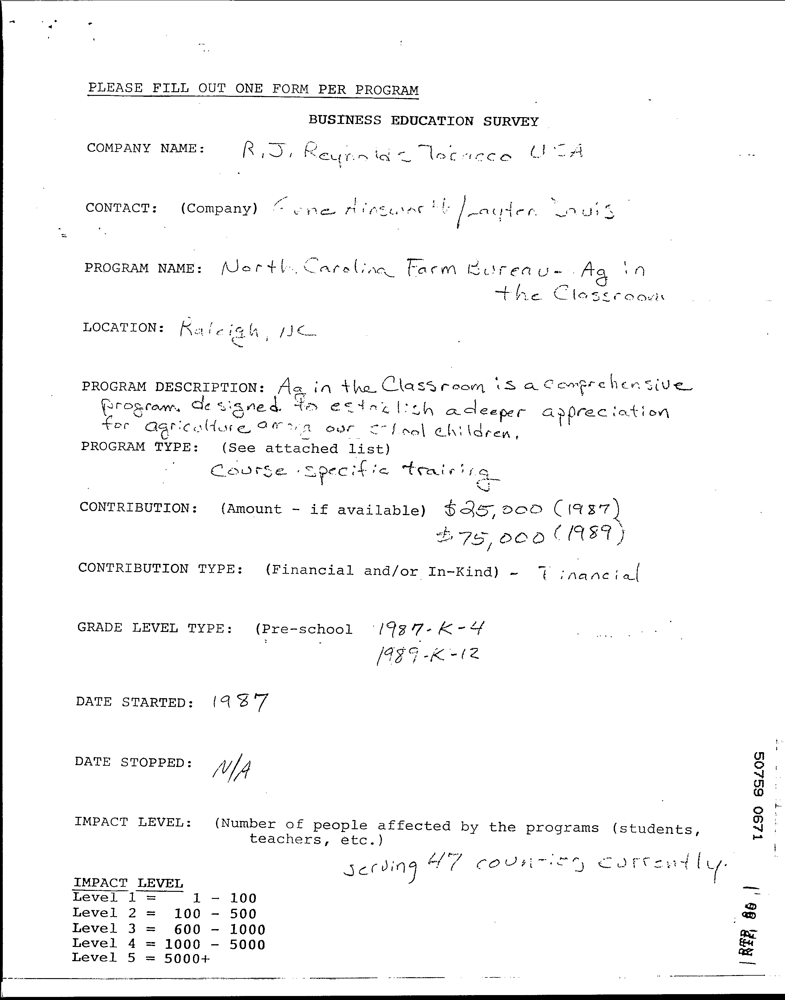 PLEASE FILL OUT ONE FORM PER PROGRAM
BUSINESS EDUCATION SURVEY
COMPANY NAME: R.J. Reynolds Tobacco USA
CONTACT: (Company) Gene Ainsworth / Layten Louis
PROGRAM NAME: North Carolina Farm Bureau - Ag in
the Classroom
LOCATION: Raleigh, NC
PROGRAM DESCRIPTION: Ag in the Classroom is a comprehensive
program designed to establish a deeper appreciation
for agriculture among our school children.
PROGRAM TYPE: (See attached list)
Course specific training
CONTRIBUTION: (Amount - if available) $25,000 (1987)
$75,000 (1989)
CONTRIBUTION TYPE: (Financial and/or In-Kind) - Financial
GRADE LEVEL TYPE: (Pre-school 1987-K-4
1989-K-12
DATE STARTED: 1987
DATE STOPPED: N/A
IMPACT LEVEL: (Number of people affected by the programs (students,
teachers, etc.)
serving 47 counties currently.
IMPACT LEVEL
Level 1 = 1 - 100
Level 2 = 100 - 500
Level 3 = 600 - 1000
Level 4 = 1000 - 5000
Level 5 = 5000+
50759 0671